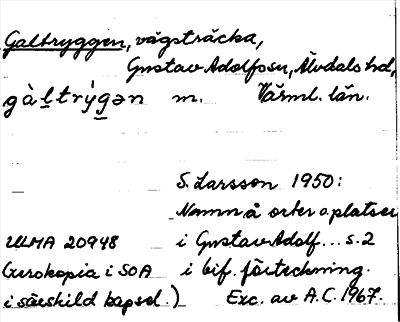 Galtryggen, vägsträcka,
Gustav Adolfssn, Älvdals hd,
gàḷtrýg̣ən m. Värml. län.
S. Larsson 1950:
Namn å orter o platser
ULMA 20948 i Gustav Adolf... s. 2
(Xerokopia i SOA i bif. förteckning.
i särskild kapsel.) Exc. av A.C. 1967.